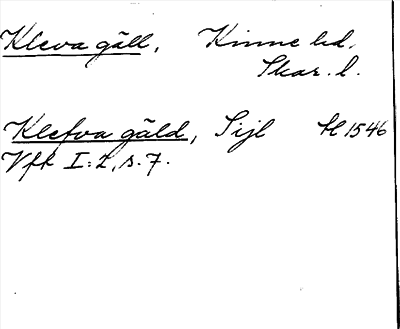 Kleva gäll, Kinne hd.
Skar. l.
Klefva gäld, Sijl H 1546
Vfk I:2, s. 7.